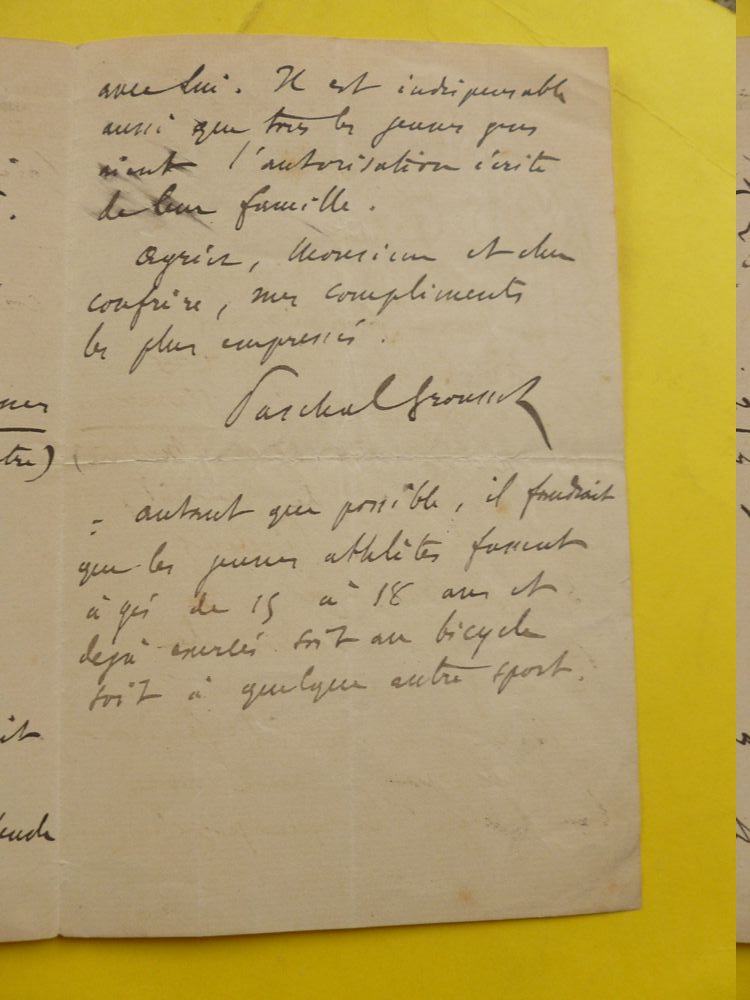 avec lui. Il est indispensable
aussi que tous les jeunes gens
aient l'autorisation écrite
de leur famille.
Agréez, Monsieur et cher
confrère, mes compliments
les plus empressés.
Paschal Grousset
tre)
- autant que possible, il faudrait
que les jeunes athlètes fussent
âgés de 15 à 18 ans et
déjà exercés soit au bicycle
soit à quelque autre sport.
it